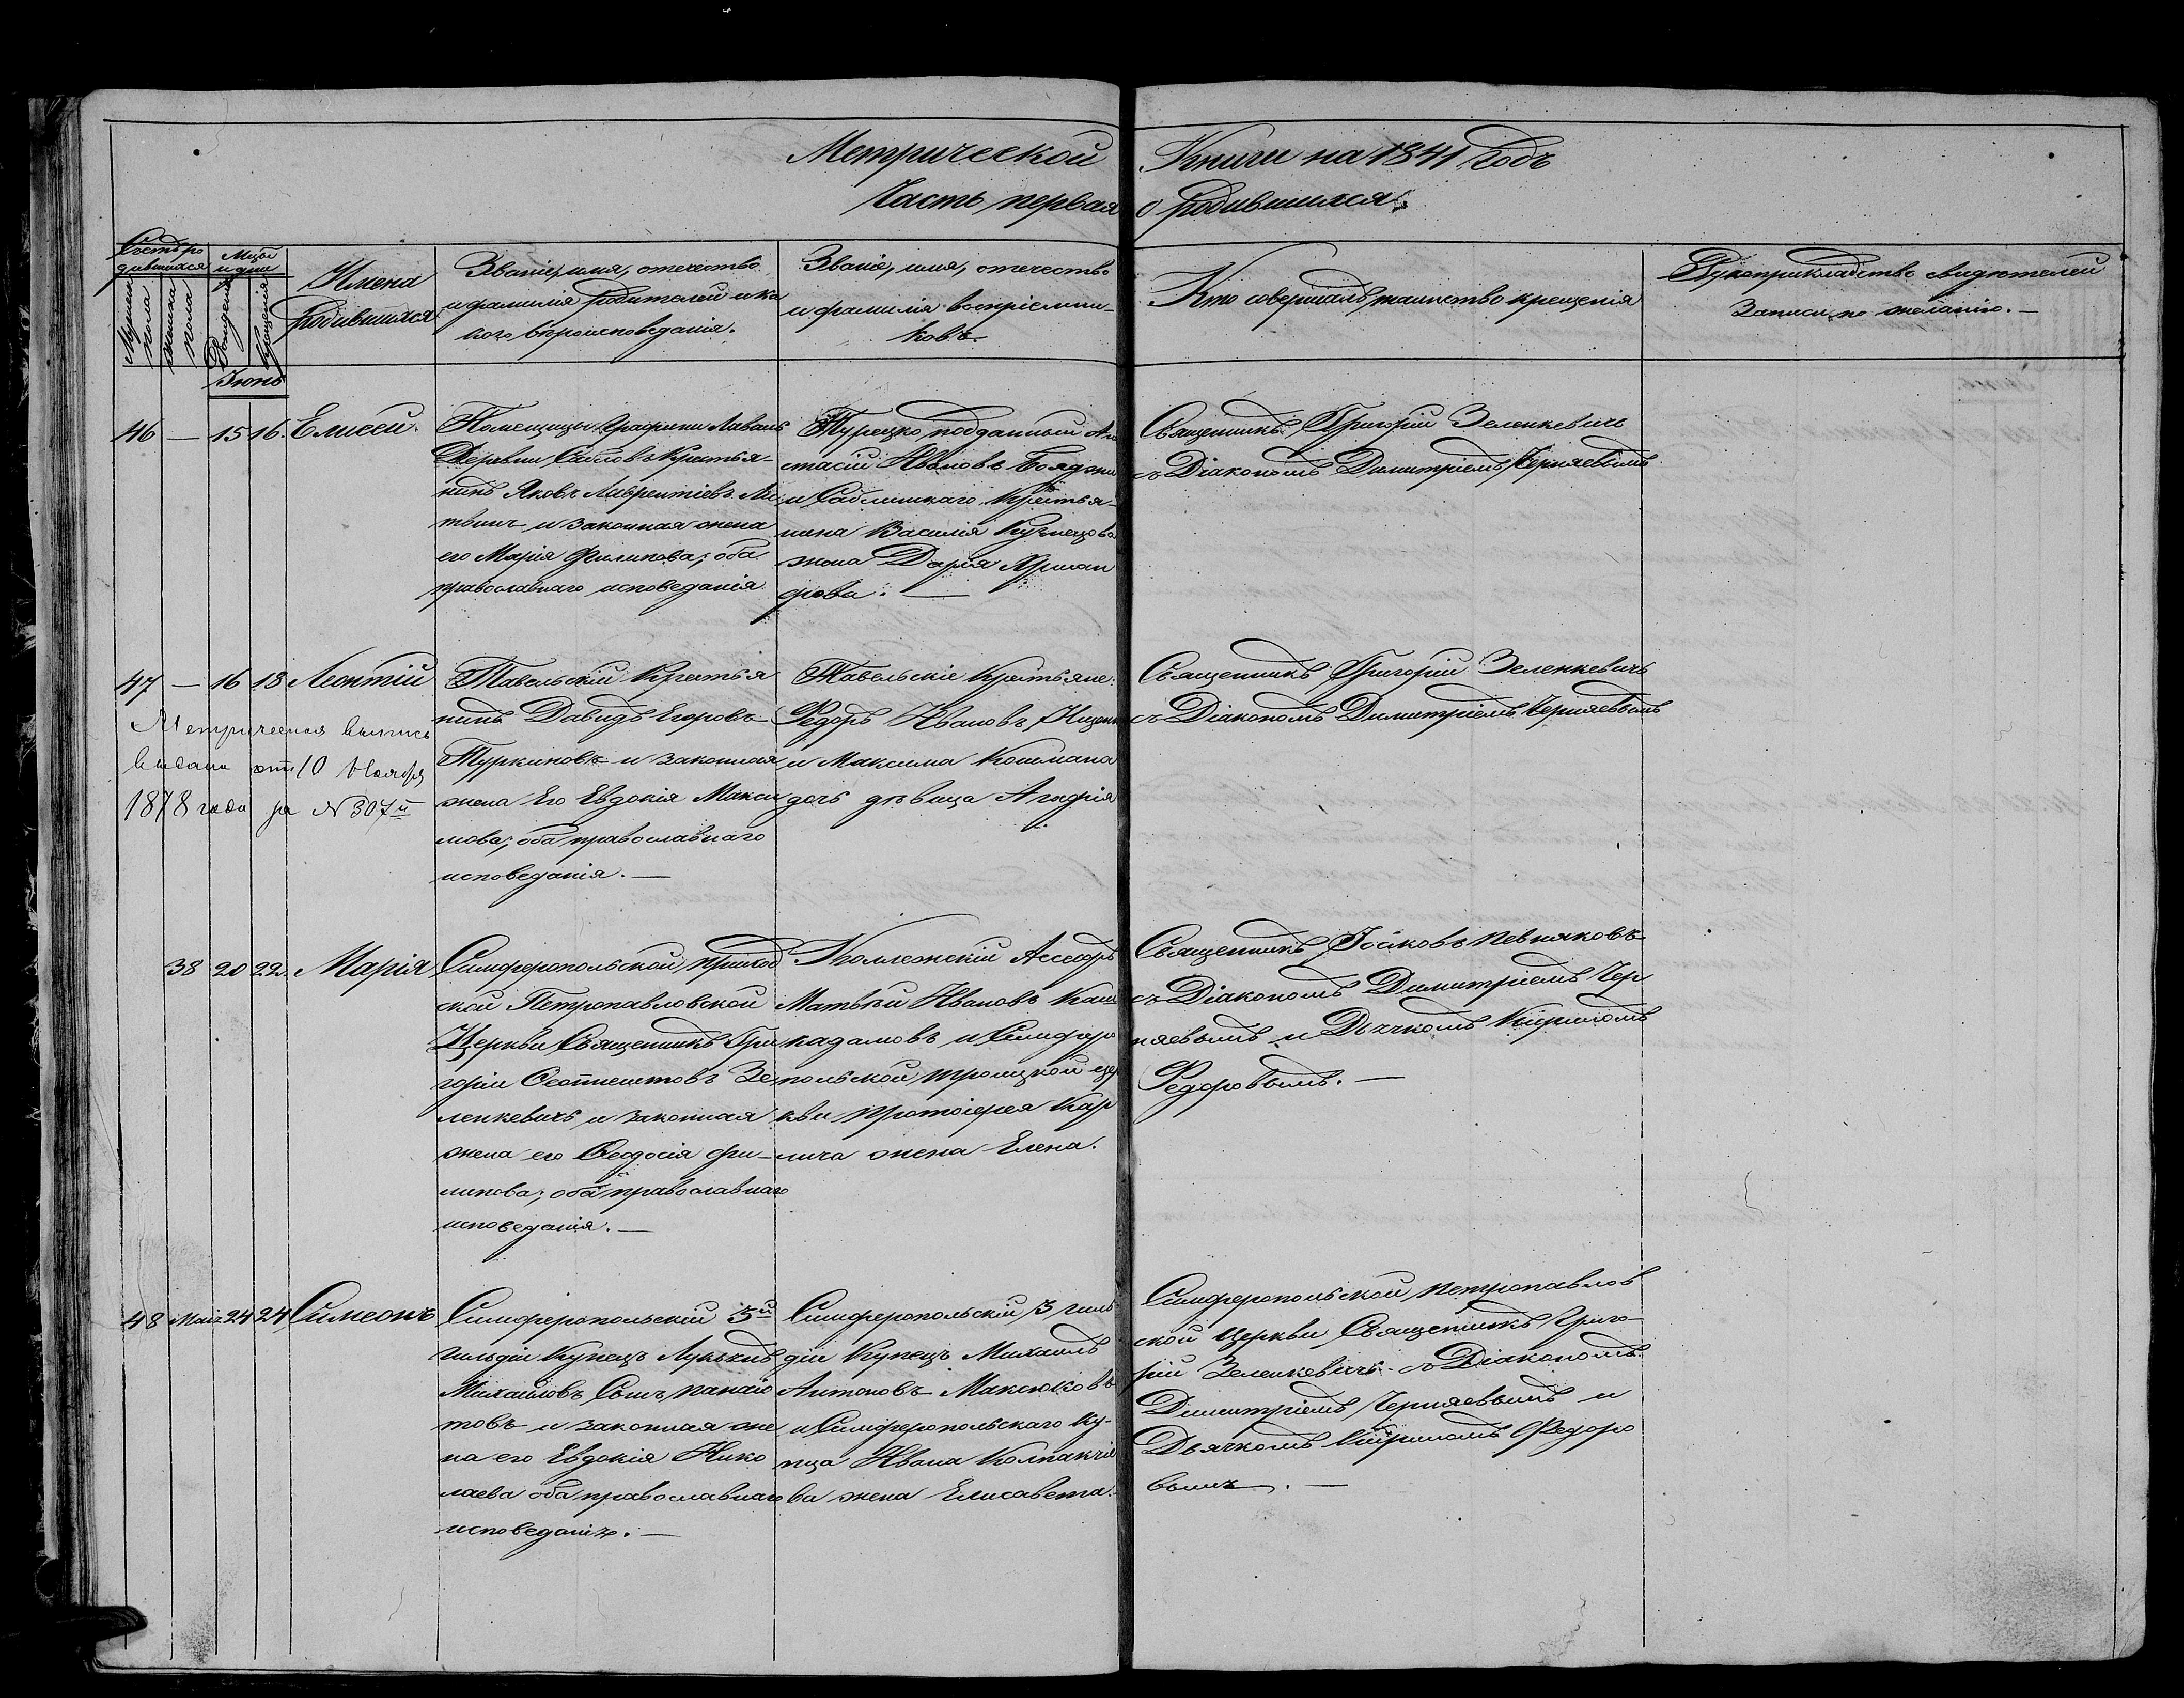 Метрической Книги на 1841 Годъ
Часть первая о родившихся.
Счетъ ро
дившихся
Мужеска
пола
женска
пола
Мцъ
и дни
Рожденія
Крещенія
Имена
Родившихся
Званіе, имя, отечество
и фамилія родителей и ка
кого вѣроисповеданія.
Званіе, имя, отечество
и фамилія воспріемни-
ковъ.
Кто совершалъ таинство крещенія
Рукоприкладство свидетелей
Записи по желанію. —
Іюнь
46 — 15 16. Елисей.
Помещицы Графини Лаваль
Деревни Саблов Крестья-
нинъ Яковъ Лаврентіевъ Ли
твинъ и законная жена
его Марія Филипова; оба
православнаго исповеданія.
Турецко подданный Ана
стасій Ивановъ Бояджи
и Саблинскаго Крестья-
нина Василія Кузнецова
жена Дарія
Священникъ Григорій Зеленкевичь
съ Діакономъ Димитріемъ Черняевымъ
47 — 16 18 Леонтій
Метрическая выпись
выдана отъ 10 Ноября
1878 года за N 307й
Тавельскій Крестья
нинъ Давидъ Егоровъ
Туркиновъ и законная
жена Его Евдокія Макси
мова; оба православнаго
исповеданія. —
Тавельскіе Крестьяне:
Федоръ Ивановъ
и Максима Кошмана
дочь дѣвица Агафія
Священникъ Григорій Зеленкевичь
съ Діакономъ Димитріемъ Черняевымъ
38 20 22. Марія
Симферопольской приход
ской Петропавловской
Церкви Священникъ Гри
горій Зе
ленкевичь и законная
жена его Феодосія Фи-
липова; оба православнаго
исповеданія. —
Коллежскій Асесоръ
Матвѣй Ивановъ Каш
кадамовъ и Симферо
польской троицкой цер
кви протоіерея Кар
лича жена Елена.
Священникъ Іоаковъ Певняковъ
съ Діакономъ Димитріемъ Чер
няевымъ и Дьячкомъ Кириломъ
Федоровымъ. —
48 Маія 24 24 Симеонъ
Симферопольскій 3й
гильдіи Купецъ Лукьянъ
Михайловъ Сынъ панаіо
товъ и законная же
на его Евдокія Нико
лаева оба православнаго
исповеданія. —
Симферопольскій 3 гиль
діи Купецъ Михаилъ
Антоновъ Максюковъ
и Симферопольскаго Ку-
пца Ивана Колпакчіе
ва жена Елисавета.
Симферопольской петропавлов
ской Церкви Священникъ Григо-
рій Зеленкевичь съ Діакономъ
Димитріемъ Черняевымъ и
Дьячкомъ Кириломъ Федоро
вымъ. —